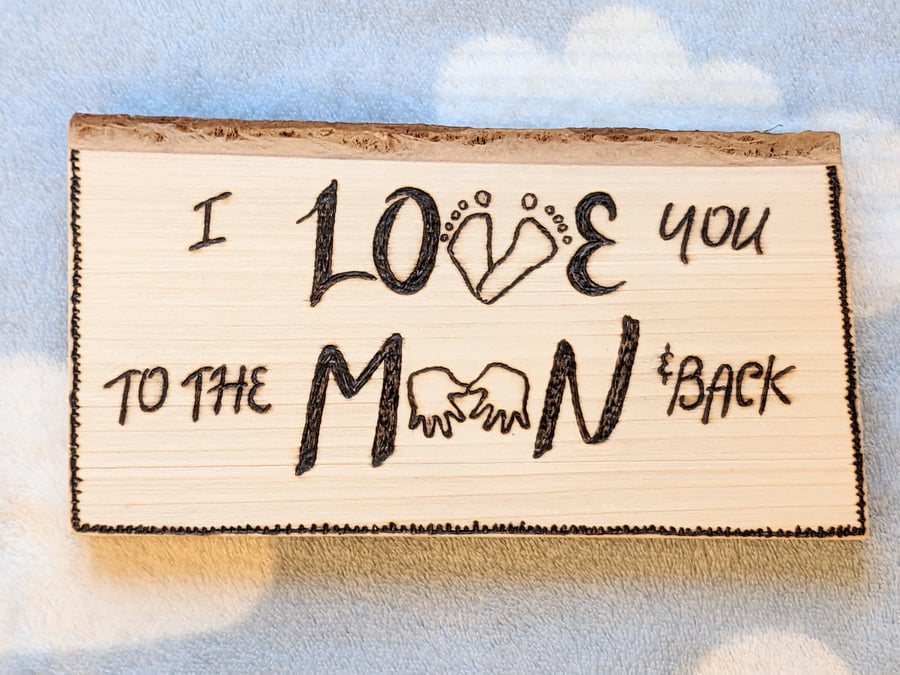 I LOVE YOU
TO THE MOON & BACK